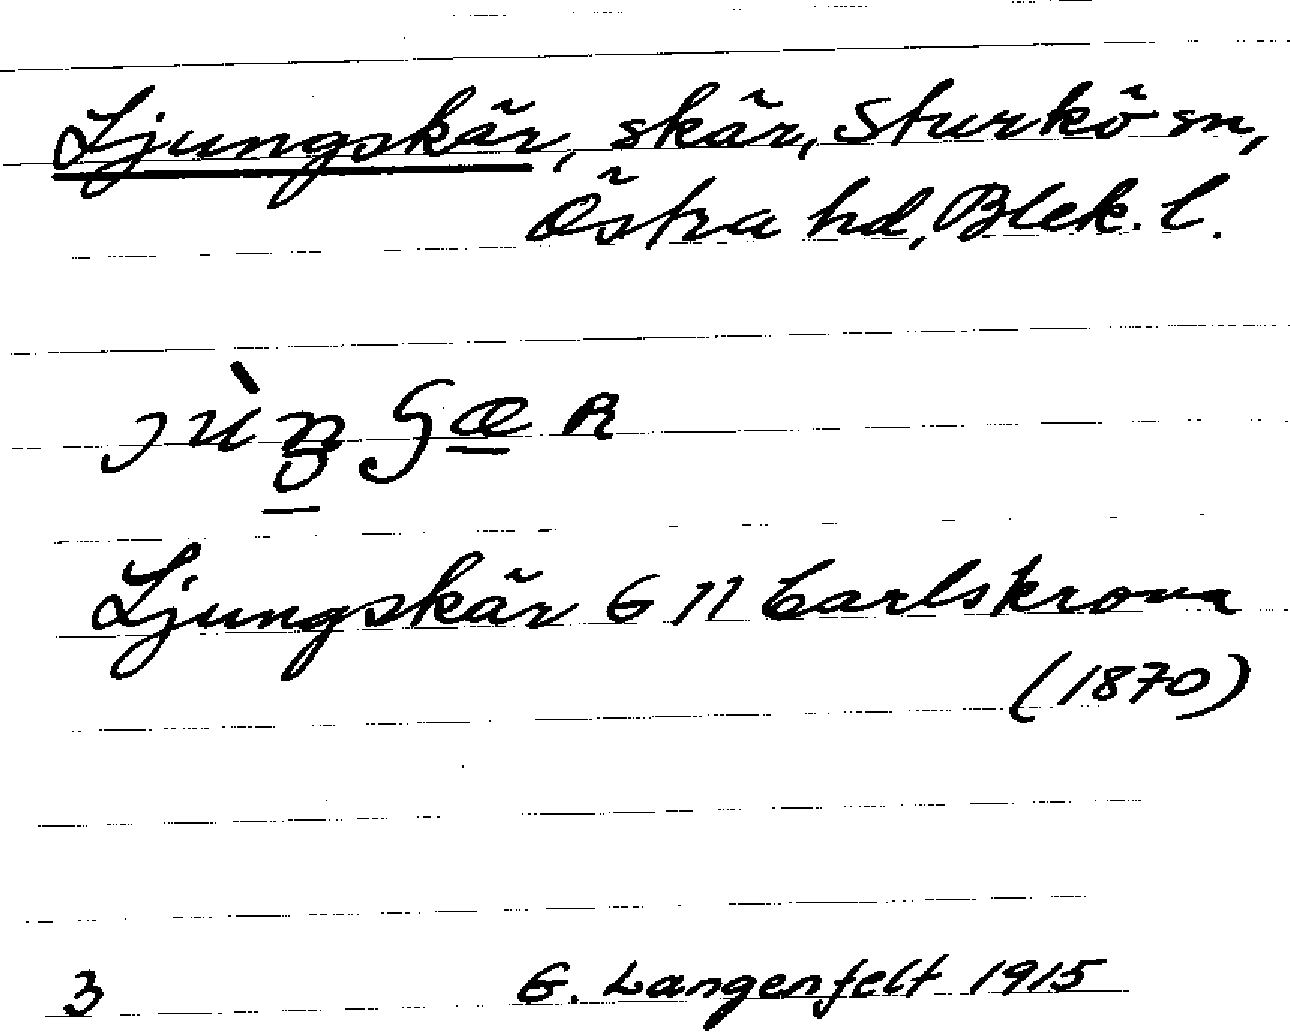 Ljungskär, skär, Sturkö sn,
Östra hd, Blek. l.
Ljungskär G 11 Carlskrona
(1870)
3 G. Langenfelt 1915